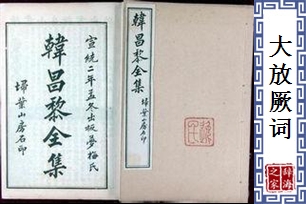 宣統二年孟冬出板夢梅氏
韓昌黎全集
掃葉山房石印
韓昌黎全集
掃葉山房石印
大放厥词
辞海
之家